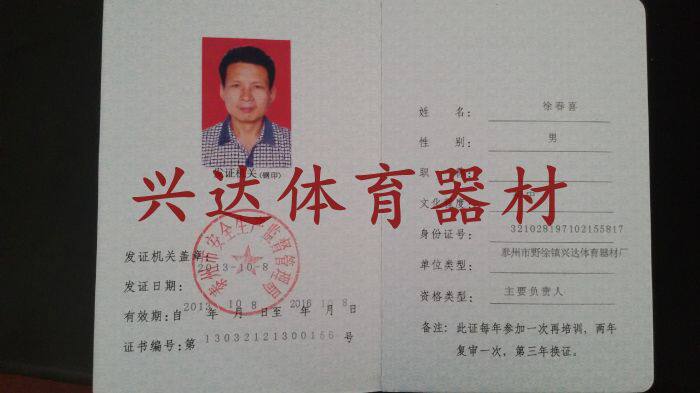 发证机关(钢印)
发证机关盖章:
泰州市安全生产监督管理局
发证日期: 2013-10-8
有效期: 自 2013 年 10 月 8 日至 2016 年 10 月 8 日
证书编号: 第 13032121300156 号
姓 名: 徐春喜
性 别: 男
职
文化程度:
身份证号: 321028197102155817
单位类型: 泰州市野徐镇兴达体育器材厂
资格类型: 主要负责人
备注: 此证每年参加一次再培训, 两年
复审一次, 第三年换证。
兴达体育器材